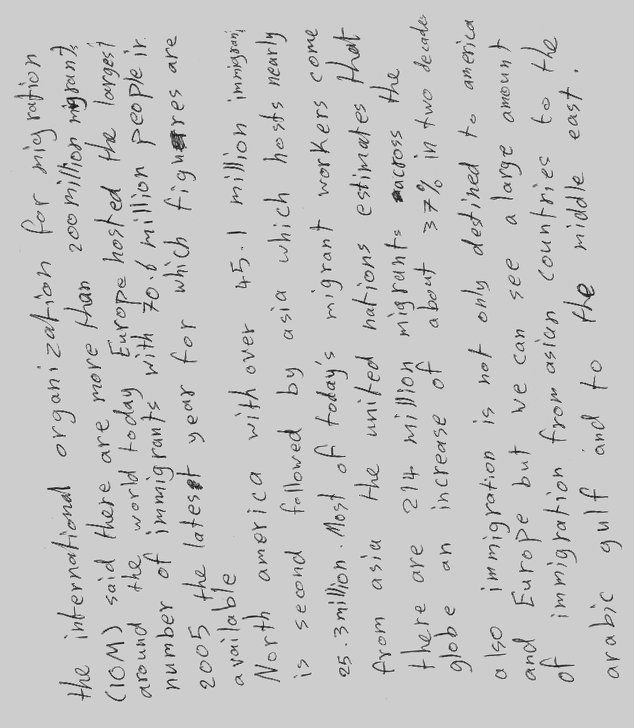 the international organization for migration
(IOM) said there are more than 200 million migrants
around the world today Europe hosted the largest
number of immigrants with 70.6 million people in
2005 the latest year for which figures are
available
North america with over 45.1 million immigrants
is second followed by asia which hosts nearly
25.3 million. Most of today's migrant workers come
from asia the united nations estimates that
there are 214 million migrants across the
globe an increase of about 37% in two decades
also immigration is not only destined to america
and Europe but we can see a large amount
of immigration from asian countries to the
arabic gulf and to the middle east.